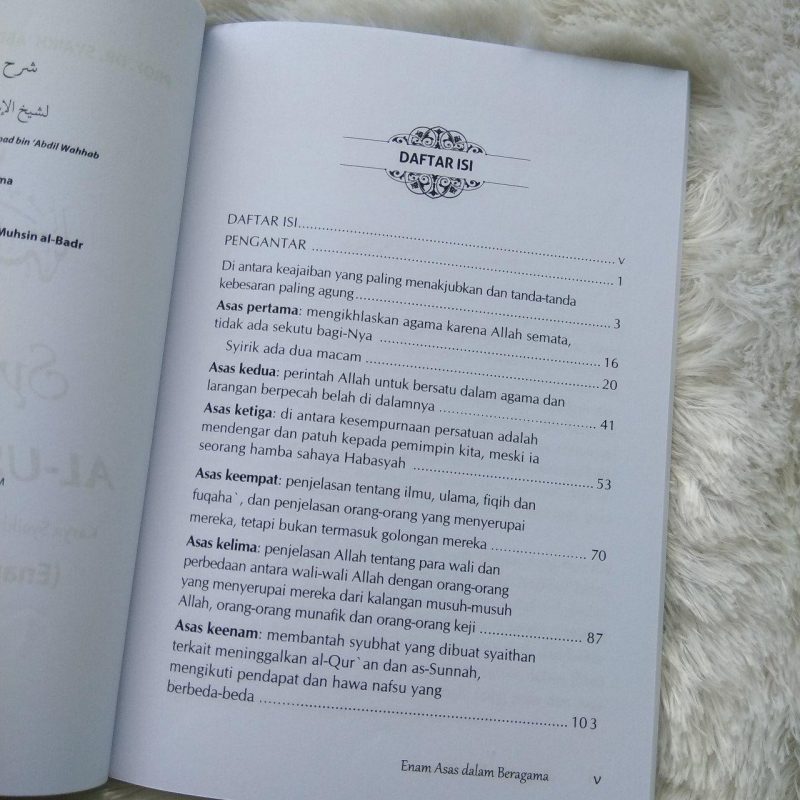 شرح
لشيخ الإ
bin 'Abdil Wahhab
Muhsin al-Badr
DAFTAR ISI
DAFTAR ISI v
PENGANTAR 1
Di antara keajaiban yang paling menakjubkan dan tanda-tanda
kebesaran paling agung 3
Asas pertama: mengikhlaskan agama karena Allah semata,
tidak ada sekutu bagi-Nya 16
Syirik ada dua macam 20
Asas kedua: perintah Allah untuk bersatu dalam agama dan
larangan berpecah belah di dalamnya 41
Asas ketiga: di antara kesempurnaan persatuan adalah
mendengar dan patuh kepada pemimpin kita, meski ia
seorang hamba sahaya Habasyah 53
Asas keempat: penjelasan tentang ilmu, ulama, fiqih dan
fuqaha`, dan penjelasan orang-orang yang menyerupai
mereka, tetapi bukan termasuk golongan mereka 70
Asas kelima: penjelasan Allah tentang para wali dan
perbedaan antara wali-wali Allah dengan orang-orang
yang menyerupai mereka dari kalangan musuh-musuh
Allah, orang-orang munafik dan orang-orang keji 87
Asas keenam: membantah syubhat yang dibuat syaithan
terkait meninggalkan al-Qur`an dan as-Sunnah,
mengikuti pendapat dan hawa nafsu yang
berbeda-beda 103
Enam Asas dalam Beragama v